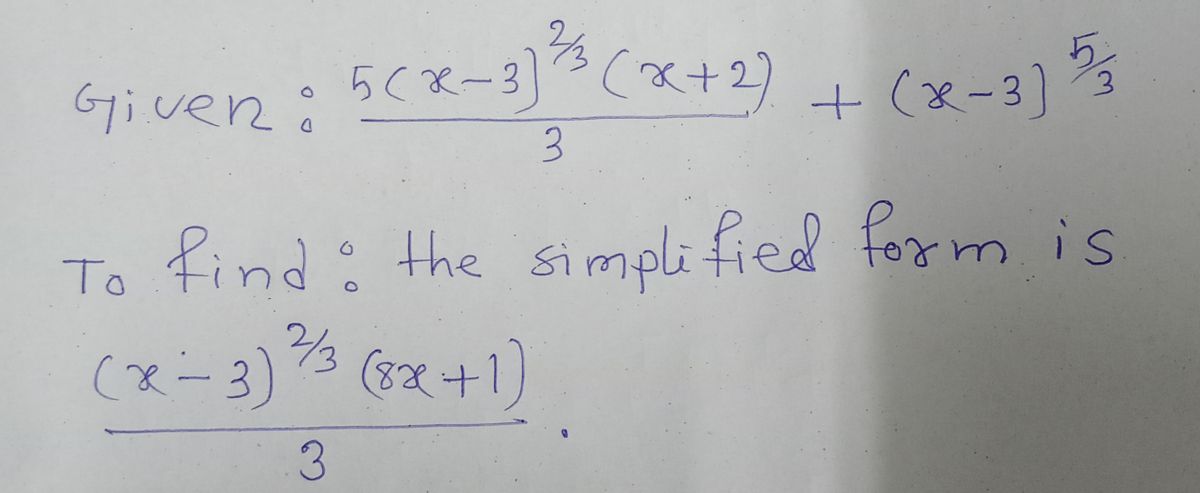 Given : 5(x-3)^2/3 (x+2) / 3 + (x-3)^5/3
To find : the simplified form is
(x-3)^2/3 (8x+1) / 3 .